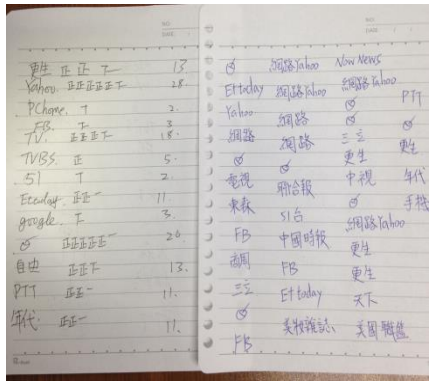 更生 正 正 下 13
Yahoo. 正正正正正下 28.
PChome. T 2.
FB. 下 3
TV. 正正正下 18.
TVBS. 正 5.
51 T 2.
Ettoday. 正正一 11.
google. 下 3.
∅ 正正正正正一 26
自由 正正下 13.
PTT 正正一 11.
年代 正正一 11.
∅ 網路Yahoo Now News
Ettoday 網路Yahoo 網路Yahoo PTT
Yahoo 網路 ∅ ∅
網路 網路 三立 更生
∅ ∅ 更生
電視 聯合報 中視 年代
東森 51台 ∅ 手機
FB 中國時報 網路Yahoo
商周 FB 更生
三立 Ettoday 更生
∅ 天下
FB 美妝雜誌 美國職籃